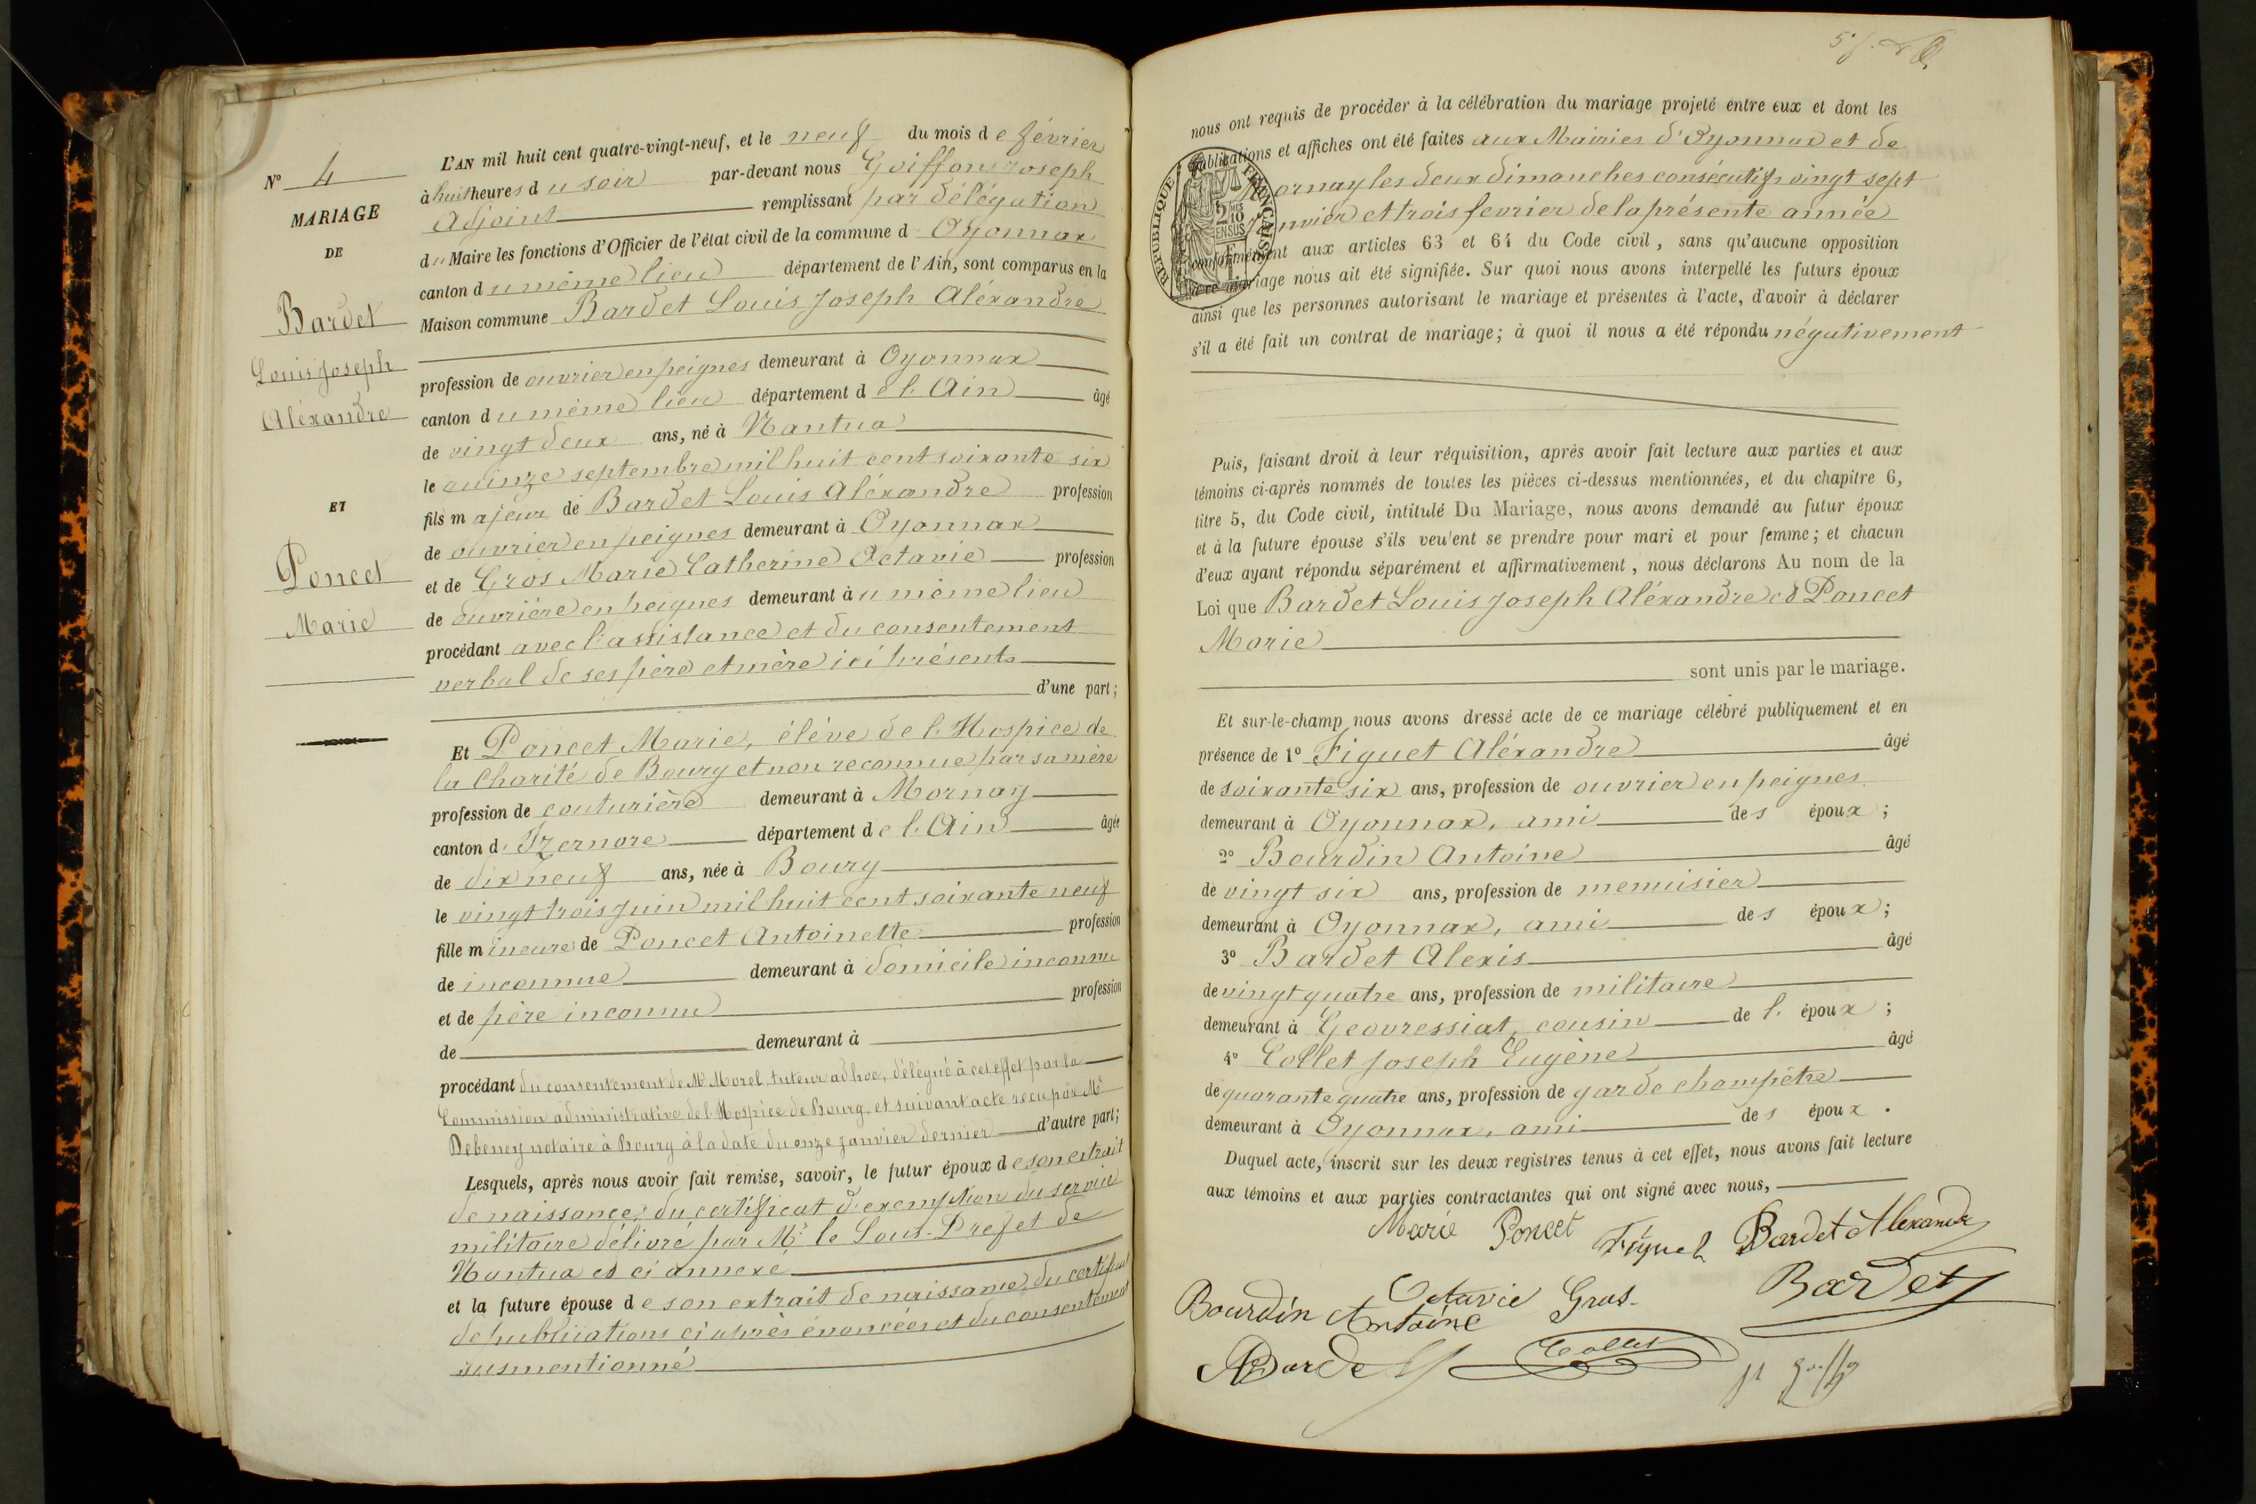 N° 4
MARIAGE
DE
Bardet
Louis Joseph
Aléxandre
ET
Poncet
Marie
L'AN mil huit cent quatre-vingt-neuf, et le neuf du mois de février
à huit heures du soir par-devant nous Goiffon Joseph
Adjoint remplissant par délégation
du Maire les fonctions d'Officier de l'état civil de la commune d Oyonnax
canton du même lieu département de l'Ain, sont comparus en la
Maison commune Bardet Louis Joseph Aléxandre
profession de ouvrier en peignes demeurant à Oyonnax
canton du même lieu département de l'Ain âgé
de vingt deux ans, né à Nantua
le quinze septembre mil huit cent soixante six
fils majeur de Bardet Louis Aléxandre profession
de ouvrier en peignes demeurant à Oyonnax
et de Gros Marie Catherine Octavie profession
de ouvrière en peignes demeurant au même lieu
procédant avec l'assistance et du consentement
verbal de ses père et mère ici présents
d'une part;
Et Poncet Marie, élève de l'Hospice de
la Charité de Bourg et non reconnue par sa mère
profession de couturière demeurant à Mornay
canton d'Izernore département de l'Ain âgée
de dix neuf ans, née à Bourg
le vingt trois juin mil huit cent soixante neuf
fille mineure de Poncet Antoinette profession
de inconnue demeurant à domicile inconnu
et de père inconnu profession
de demeurant à
procédant du consentement de Mr Morel, tuteur ad hoc, délégué à cet effet par la
Commission administrative de l'Hospice de Bourg, et suivant acte reçu par Me
Debeney notaire à Bourg à la date du onze janvier dernier d'autre part;
Lesquels, après nous avoir fait remise, savoir, le futur époux de son extrait
de naissance, du certificat d'exemption du service
militaire délivré par Mr le Sous-Préfet de
Nantua et ci annexé
et la future épouse de son extrait de naissance, du certificat
de publications ci après énoncées et du consentement
susmentionné
nous ont requis de procéder à la célébration du mariage projeté entre eux et dont les
publications et affiches ont été faites aux Mairies d'Oyonnax et de
Mornay les deux dimanches consécutifs vingt sept
janvier et trois fevrier de la présente année
conformément aux articles 63 et 64 du Code civil, sans qu'aucune opposition
à ce mariage nous ait été signifiée. Sur quoi nous avons interpellé les futurs époux
ainsi que les personnes autorisant le mariage et présentes à l'acte, d'avoir à déclarer
s'il a été fait un contrat de mariage; à quoi il nous a été répondu négativement
RÉPUBLIQUE FRANÇAISE
2 DES 10 EN SUS
Puis, faisant droit à leur réquisition, après avoir fait lecture aux parties et aux
témoins ci-après nommés de toutes les pièces ci-dessus mentionnées, et du chapitre 6,
titre 5, du Code civil, intitulé Du Mariage, nous avons demandé au futur époux
et à la future épouse s'ils veulent se prendre pour mari et pour femme; et chacun
d'eux ayant répondu séparément et affirmativement, nous déclarons Au nom de la
Loi que Bardet Louis Joseph Aléxandre et Poncet
Marie
sont unis par le mariage.
Et sur-le-champ nous avons dressé acte de ce mariage célébré publiquement et en
présence de 1° Figuet Aléxandre âgé
de soixante six ans, profession de ouvrier en peignes
demeurant à Oyonnax, ami des époux;
2° Bourdin Antoine âgé
de vingt six ans, profession de menuisier
demeurant à Oyonnax, ami des époux;
3° Bardet Alexis âgé
de vingt quatre ans, profession de militaire
demeurant à Geovressiat, cousin de l'époux;
4° Collet Joseph Eugène âgé
de quarante quatre ans, profession de garde champêtre
demeurant à Oyonnax, ami des époux.
Duquel acte, inscrit sur les deux registres tenus à cet effet, nous avons fait lecture
aux témoins et aux parties contractantes qui ont signé avec nous,
Marie Poncet Figuet Bardet Alexandre
Bourdin Antoine Octavie Gros Bardet
ABardet Collet